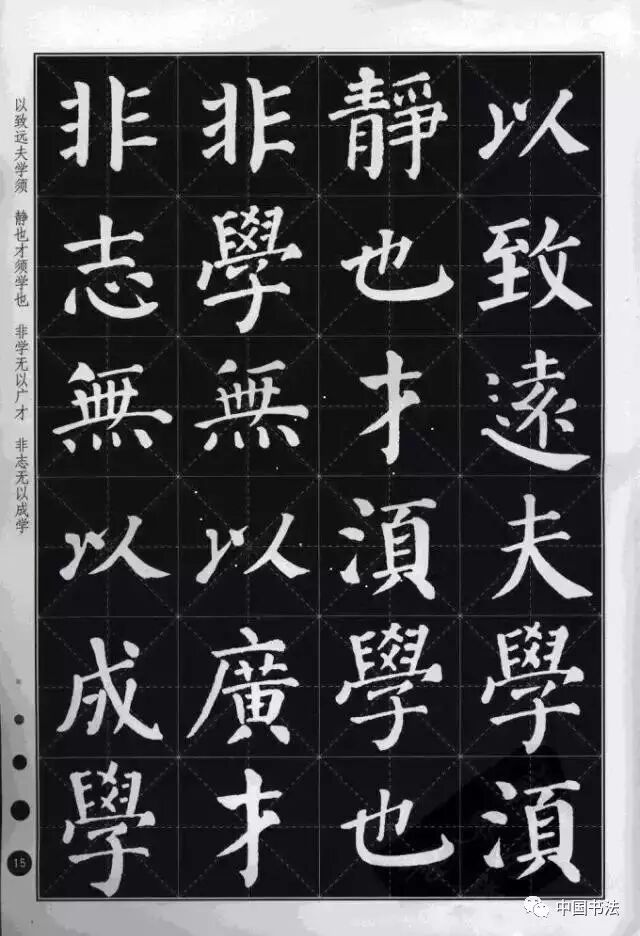 以致遠夫學湏
靜也才湏學也
非學無以廣才
非志無以成學
以致远夫学须 静也才须学也 非学无以广才 非志无以成学
15
中国书法